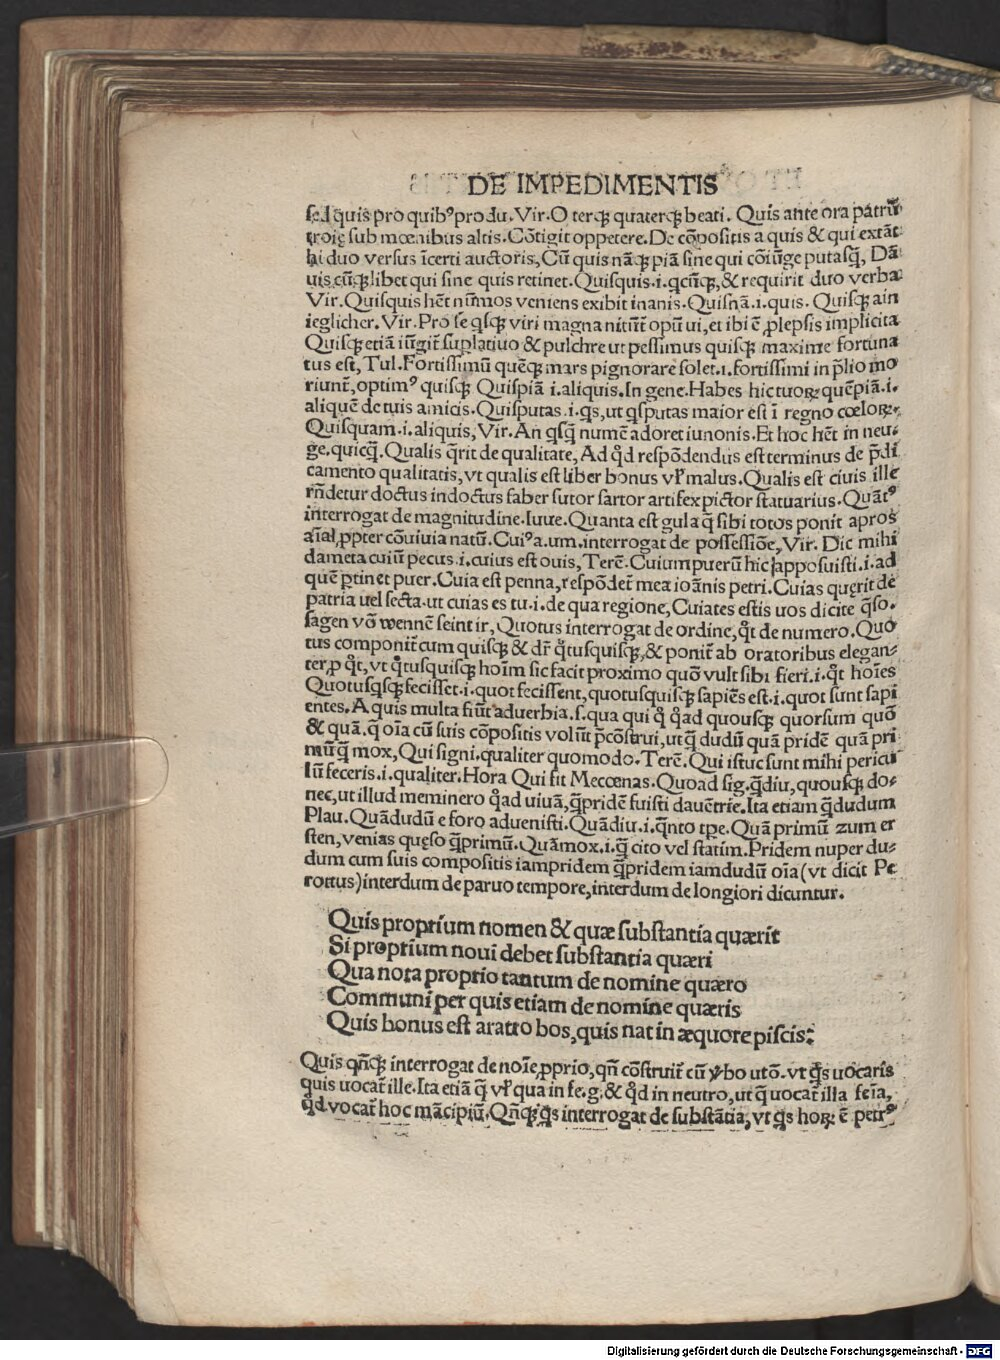 DE IMPEDIMENTIS
sed quis pro quibꝰ produ. Vir. O terqꝫ quaterqꝫ beati. Quis ante ora patrũ
troię sub mœnibus altis. Cõtigit oppetere. De cõpositis a quis & qui extãt
hi duo versus icerti auctoris, Cũ quis nãqꝫ piã sine qui cõiũge putasqꝫ, Dã
uis cũqꝫ libet qui sine quis retinet. Quisquis .i. qcũqꝫ, & requirit duo verba
Vir. Quisquis hẽt nũmos veniens exibit inanis. Quisnã .i. quis. Quisqꝫ ain
ieglicher. Vir. Pro se qsqꝫ viri magna nitũt opũ ui, et ibi ẽ ꝓlepsis implicita
Quisqꝫ etiã iũgit suplatiuo & pulchre ut pessimus quisqꝫ maxime fortuna
tus est, Tul. Fortissimũ quẽqꝫ mars pignorare solet .i. fortissimi in p̃lio mo
riunt̃, optimꝰ quisqꝫ Quispiã .i. aliquis. In gene. Habes hic tuoꝝ quẽpiã .i.
aliquẽ de tuis amicis. Quisputas .i. qs, ut qsputas maior est ĩ regno cœloꝝ.
Quisquam .i. aliquis, Vir. An qsq̃ numẽ adoret iunonis. Et hoc hẽt in neu-
ge. quicq̃. Qualis q̃rit de qualitate, Ad q̃d respõdendus est terminus de p̃di
camento qualitatis, vt qualis est liber bonus vł malus. Qualis est ciuis ille
rñdetur doctus indoctus faber sutor sartor artifex pictor statuarius. Quãtꝰ
interrogat de magnitudine. Iuue. Quanta est gula q̃ sibi totos ponit apros
aĩal ꝓpter cõuiuia natũ. Cuiꝰ a. um. interrogat de possessiõe, Vir. Dic mihi
dameta cuiũ pecus .i. cuius est ouis, Terẽ. Cuium puerũ hic apposuisti .i. ad
quẽ ptinet puer. Cuia est penna, respõdet̃ mea ioãnis petri. Cuias quęrit de
patria uel secta. ut cuias es tu .i. de qua regione, Cuiates estis uos dicite q̃so.
sagen võ wennẽ seint ir, Quotus interrogat de ordine, q̊t de numero. Quo
tus componit̃ cum quisqꝫ & dr̃ q̊tusquisqꝫ, & ponit̃ ab oratoribus elegan-
ter ꝓ q̊t, vt q̊tusquisqꝫ hoĩm sic facit proximo quõ vult sibi fieri .i. q̊t hoĩes
Quotusqsqꝫ fecisset .i. quot fecissent, quotusquisqꝫ sapiẽs est .i. quot sunt sapi
entes. A quis multa fiũt aduerbia .s. qua qui q̊ q̊ad quousqꝫ quorsum quõ
& quã. q̃ oĩa cũ suis cõpositis volũt p̃cõstrui, ut q̃ dudũ quã pridẽ quã pri
mũ q̃ mox, Qui signi. qualiter quomodo. Terẽ. Qui istuc sunt mihi pericu
lũ feceris .i. qualiter. Hora Qui fit Mecœnas. Quoad sig. q̃diu, quousqꝫ do-
nec, ut illud meminero q̊ad uiuã, q̃pridẽ fuisti dauẽtrie. Ita etiam q̃dudum
Plau. Quãdudũ e foro aduenisti. Quãdiu .i. q̃nto tpe. Quã primũ zum er
sten, venias quęso q̃primũ. Quãmox .i. q̃ cito vel statim. Pridem nuper du-
dum cum suis compositis iampridem q̃pridem iamdudũ oĩa (vt dicit Pe
rottus) interdum de paruo tempore, interdum de longiori dicuntur.
Quis proprium nomen & quæ substantia quærit
Si proprium noui debet substantia quæri
Qua nota proprio tantum de nomine quæro
Communi per quis etiam de nomine quæris
Quis bonus est aratro bos, quis nat in æquore piscis:
Quis qñqꝫ interrogat de noĩe ꝓprio, qñ cõstruit̃ cũ ṽbo utõ. vt q̃s uocaris
quis uocat̃ ille. Ita etiã q̃ vł qua in fe. g. & q̊d in neutro, ut q̃ uocat̃ illa feĩa,
q̊d vocat̃ hoc mãcipiũ. Qñqꝫ q̃s interrogat de substãtia, vt q̃s hoꝝ ẽ petrꝰ
Digitalisierung gefördert durch die Deutsche Forschungsgemeinschaft - DFG